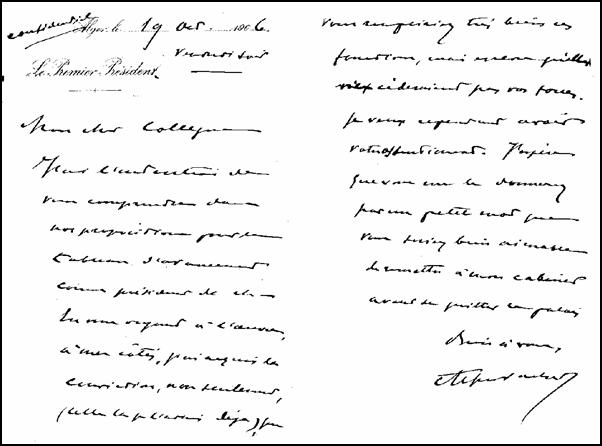 confidentiel
Alger, le 19 Oct 1906.
Vendredi soir
Le Premier Président
Mon cher Collègue
J'ai l'intention de
vous comprendre dans
nos propositions pour le
tableau d'avancement
comme président de ch—
En vous voyant à l'œuvre,
à mes côtés, j'ai acquis la
conviction, non seulement,
(celle là je l'avais déjà), que
vous rempliriez très bien ces
fonctions, mais encore qu'elles
n'excéderaient pas vos forces.
Je veux cependant avoir
votre assentiment. J'espère
que vous me le donnerez
par un petit mot que
vous seriez bien aimable
de remettre à mon cabinet
avant de quitter le palais
Bien à vous,